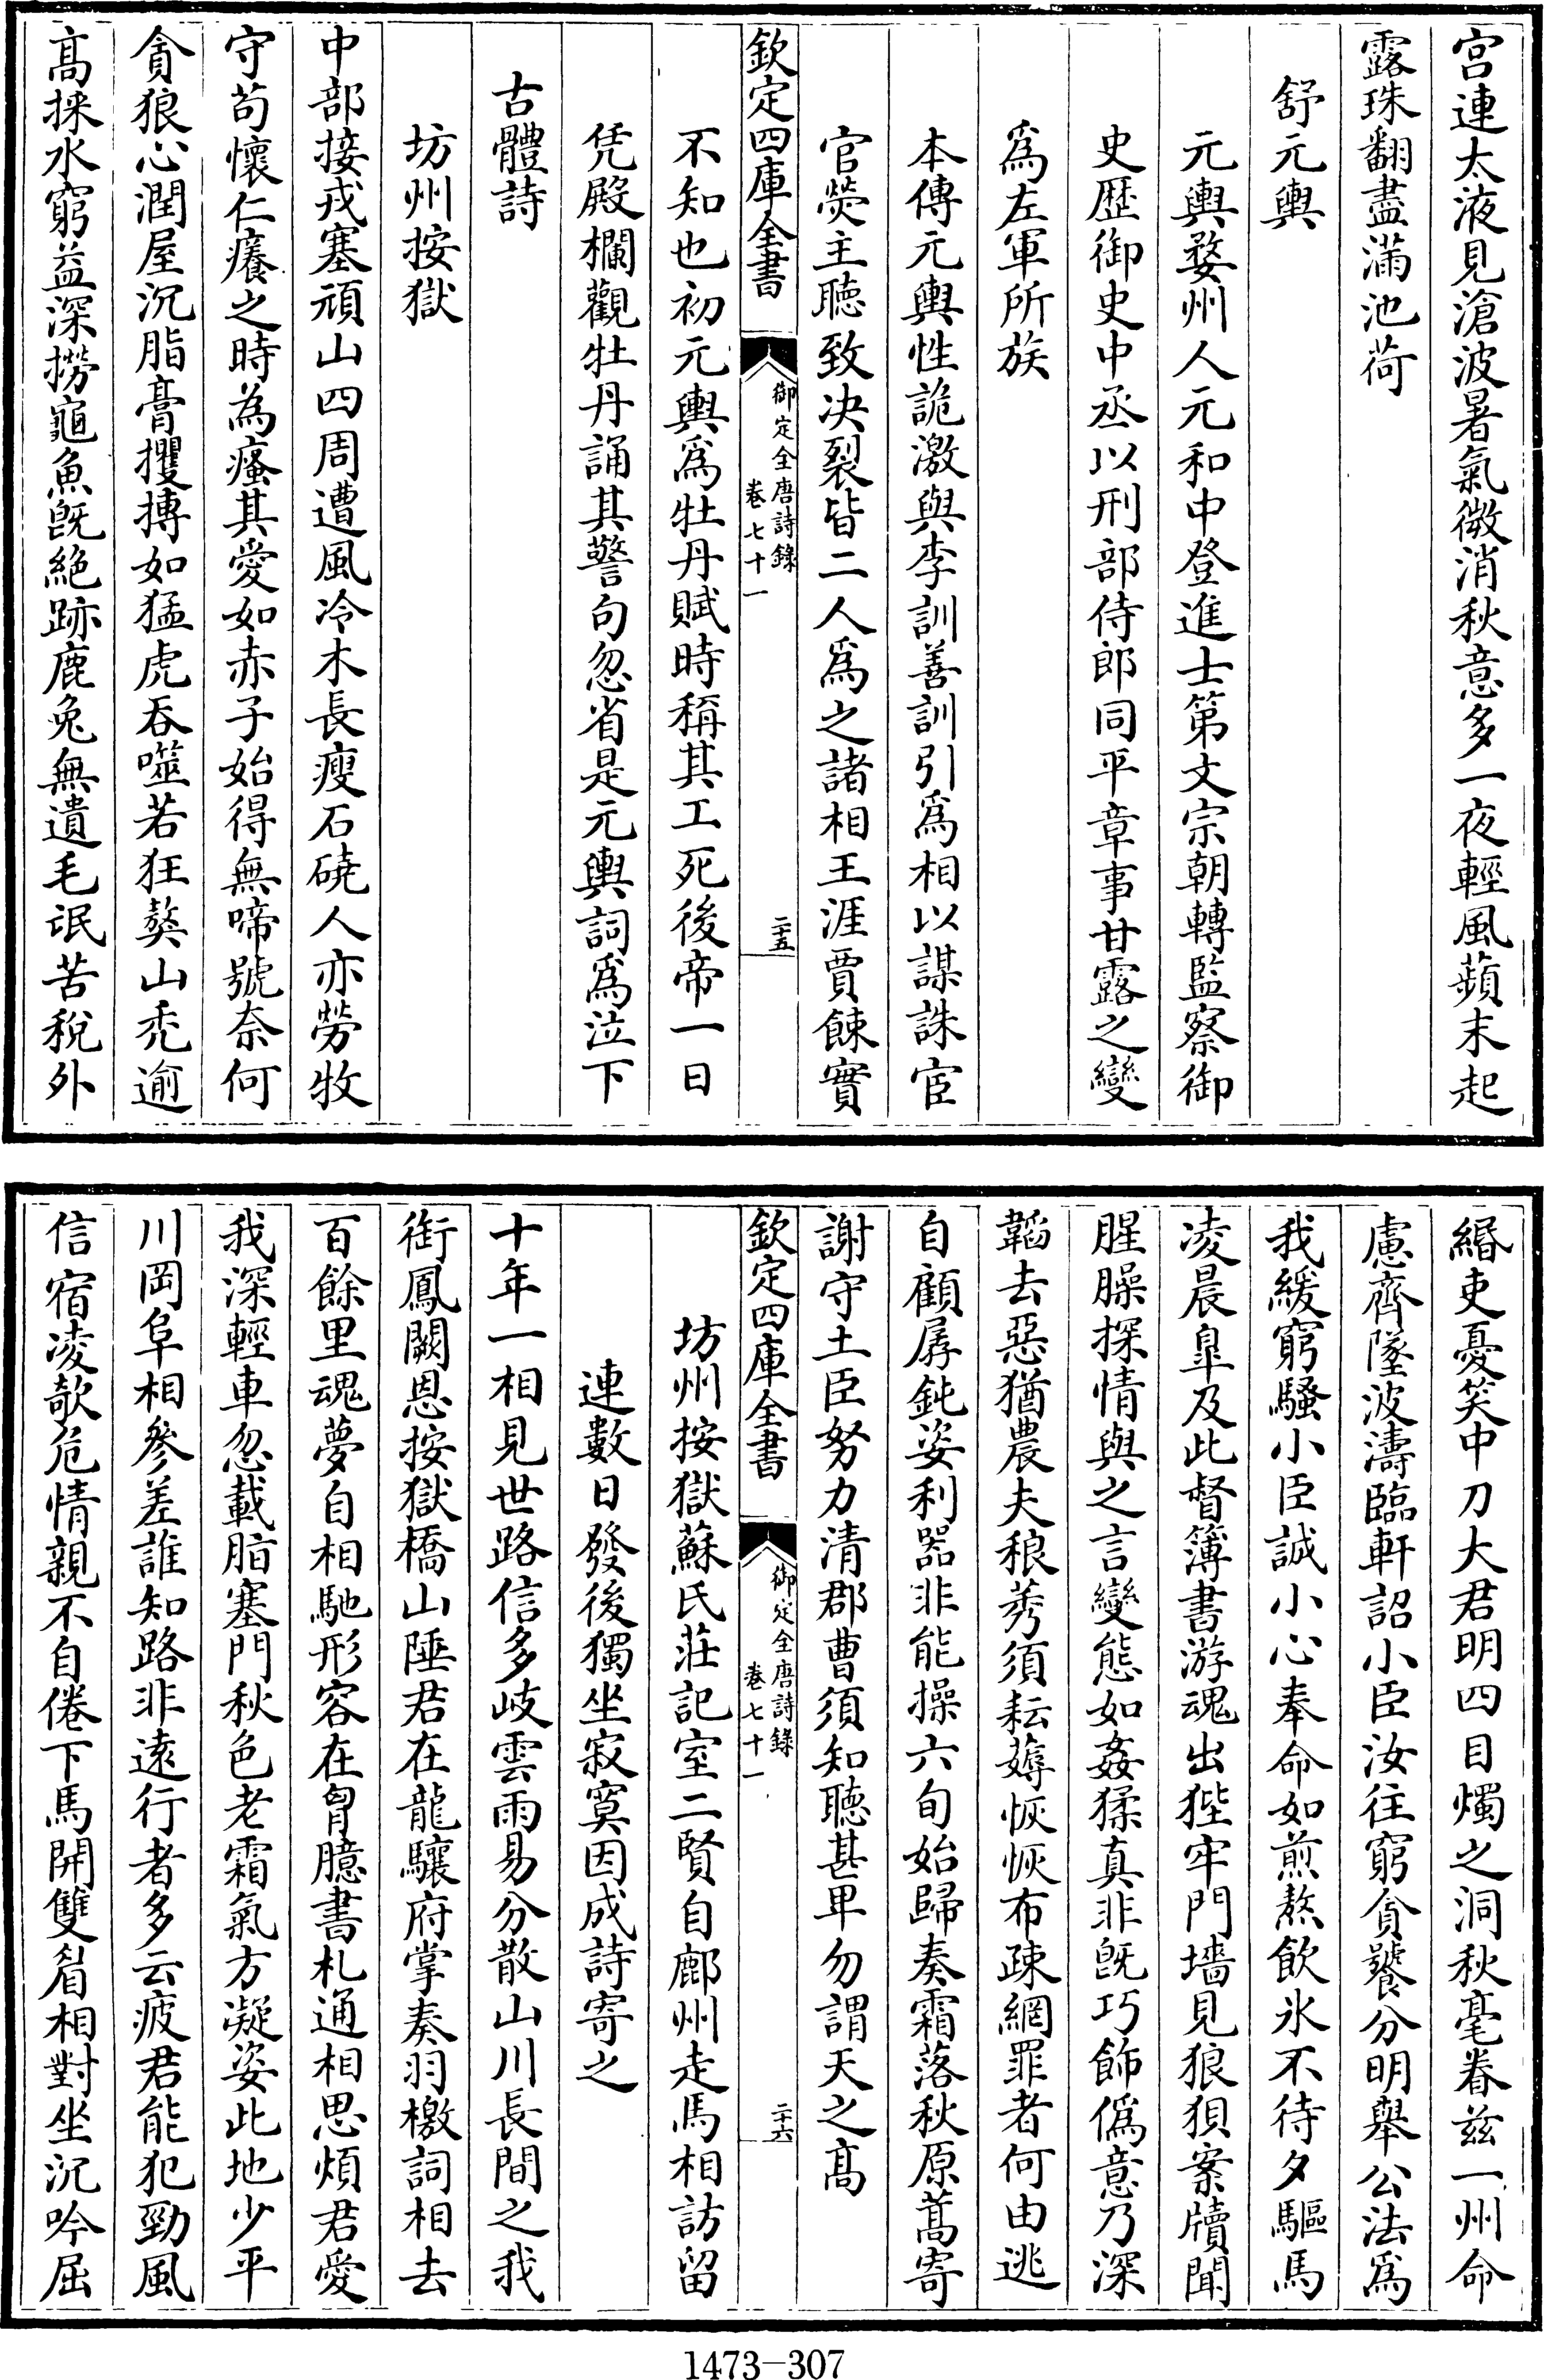 宫連太液見滄波暑氣微消秋意多一夜輕風蘋末起
露珠翻盡滿池荷
舒元輿
元輿婺州人元和中登進士第文宗朝轉監察御
史歴御史中丞以刑部侍郎同平章事甘露之變
爲左軍所族
本傳元輿性詭激與李訓善訓引爲相以謀誅宦
官熒主聽致决裂皆二人爲之諸相王涯賈餗實
欽定四庫全書
御定全唐詩錄
卷七十一
二十五
不知也初元輿爲牡丹賦時稱其工死後帝一日
凭殿欄觀牡丹誦其警句忽省是元輿詞爲泣下
古體詩
坊州按獄
中部接戎塞頑山四周遭風冷木長瘦石磽人亦勞牧
守苟懷仁癢之時為瘙其愛如赤子始得無啼號奈何
貪狼心潤屋沉脂膏攫搏如猛虎吞噬若狂獒山禿逾
高採水窮益深撈龜魚旣絕跡鹿兔無遺毛氓苦稅外
緡吏憂笑中刀大君明四目燭之洞秋毫眷兹一州命
慮齊墜波濤臨軒詔小臣汝往窮貪饕分明舉公法爲
我緩窮騷小臣誠小心奉命如煎熬飲氷不待夕驅馬
凌晨臯及此督簿書游魂出狴牢門墻見狼狽案牘聞
腥臊探情與之言變態如姦猱真非旣巧飾僞意乃深
韜去惡猶農夫稂莠須耘薅恢恢布疎網罪者何由逃
自顧孱鈍姿利器非能操六旬始歸奏霜落秋原蒿寄
謝守土臣努力清郡曹須知聽甚卑勿謂天之髙
欽定四庫全書
御定全唐詩錄
卷七十一
二十六
坊州按獄蘇氏莊記室二賢自鄜州走馬相訪留
連數日發後獨坐寂寞因成詩寄之
十年一相見世路信多岐雲雨易分散山川長間之我
銜鳳闕恩按獄橋山陲君在龍驤府掌奏羽檄詞相去
百餘里魂夢自相馳形容在胷臆書札通相思煩君愛
我深輕車忽載脂塞門秋色老霜氣方凝姿此地少平
川岡阜相參差誰知路非逺行者多云疲君能犯勁風
信宿凌欹危情親不自倦下馬開雙眉相對坐沉吟屈
1473-307